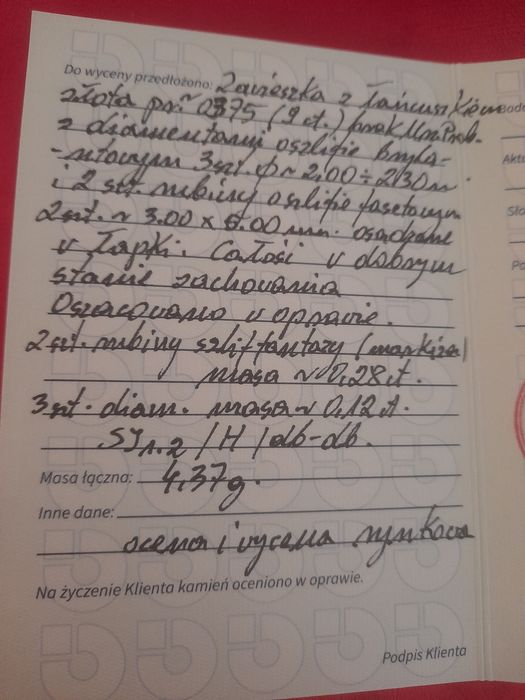 Do wyceny przedłożono: Zawieszka z łańcuszkiem
złota pr. ~ 0,375 (9 ct.)
z diamentami oszlifie bryla-
-ntowym 3szt. φ ~ 2.00 ÷ 2.30m
i 2 szt rubiny oszlifie fasetowym
2szt. ~ 3.00 x 6.00 mm. osadzone
w łapki. Całość w dobrym
stanie zachowania
Oszacowano w oprawie.
2szt. rubiny szlif fantazy (markiza)
masa ~ 0,28ct.
3szt. diam. masa ~ 0,12 ct.
SI1.2 / H / db-db.
Masa łączna: 4,37g.
Inne dane:
ocena i wycena rynkowa
Na życzenie Klienta kamień oceniono w oprawie.
Podpis Klienta